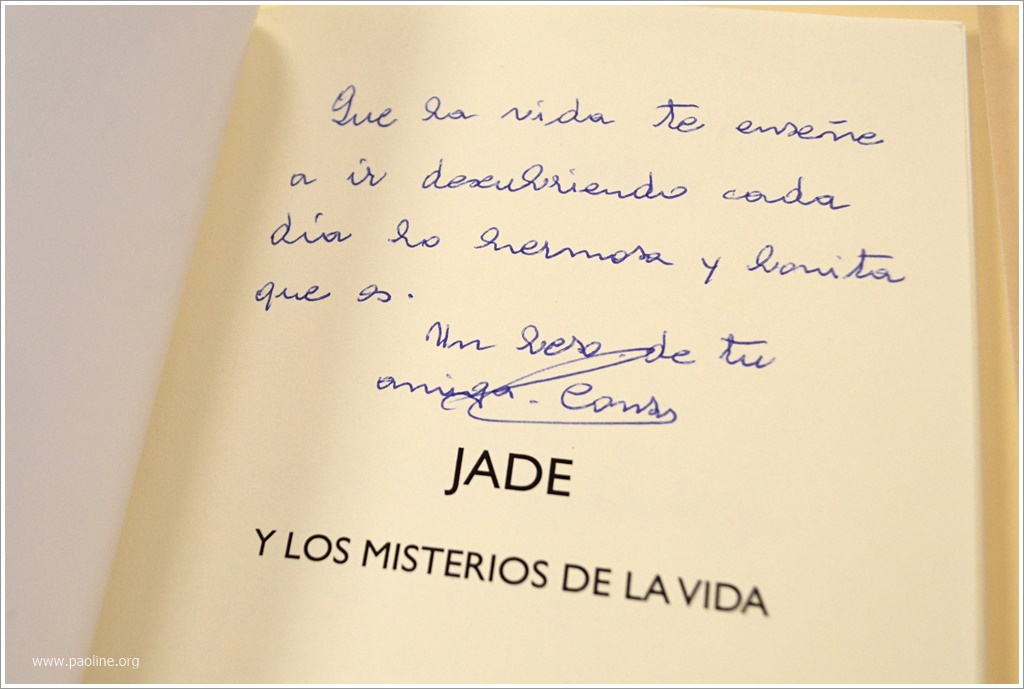 Que la vida te enseñe
a ir descubriendo cada
día lo hermosa y bonita
que es.
Un beso de tu
amiga.
JADE
Y LOS MISTERIOS DE LA VIDA
www.paoline.org